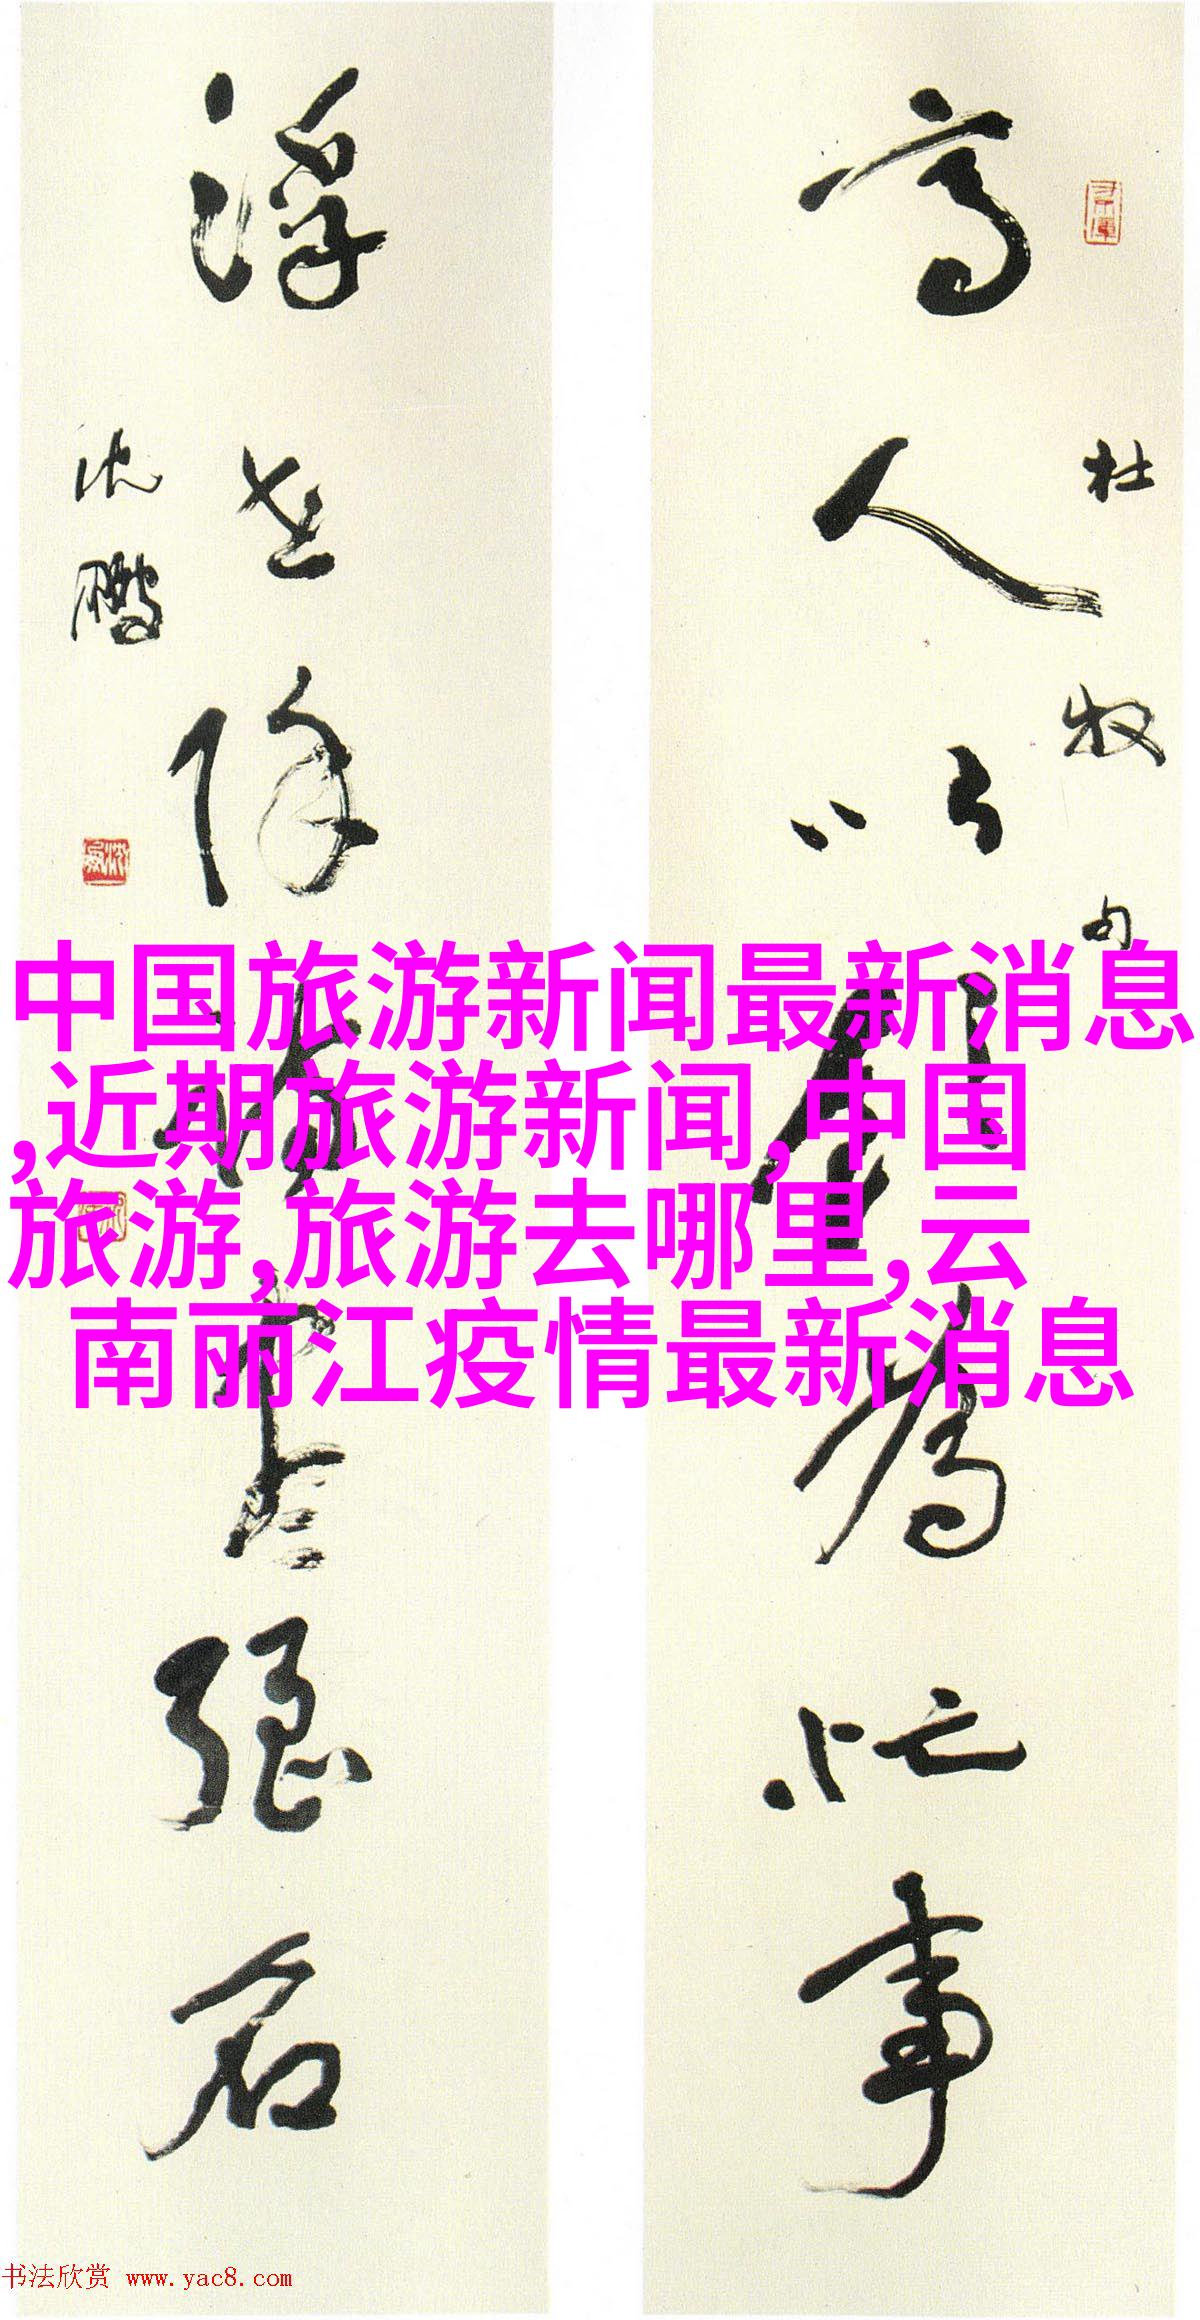 杜牧句
高人以飲為忙事
浮世除詩盡強名
沈鵬
中国旅游新闻最新消息
,近期旅游新闻,中国
旅游,旅游去哪里,云
南丽江疫情最新消息
书法欣赏 www.yac8.com